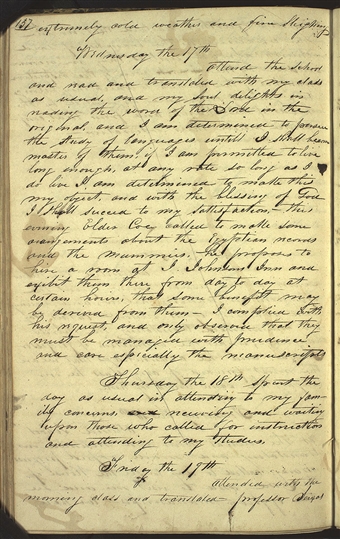 157 extremely cold weather and fine Sleighing
Wednesday the 17th
attend the School
and read and translated with my class
as usual, and my soul delights in
reading the word of the Lord in the
original, and I am determined to persue
the study of languages untill I shall become
master of them, if I am permitted to live
long enough, at any rate so long as I
do live I am determined to make this
my object, and with the blessing of God
I shall succed to my sattisfaction,— this
evening Elder Coe called to make some
arangements about the Egyptian records
and the mummies, he proposes to
hire a room at J. Johnsons Inn and
exibit them there from day to day at
certain hours, that some benefit may
be derived from them— I complied with
his request, and only observed that they
must be managed with prudence
and care especially the manuscripts
Thursday the 18th Spent the
day as usual in attending to my fam-
ily concerns, receiving and waiting
upon those who called for instruction
and attending to my studies.
Friday the 19th
attended with the
morning class and translated— professor Seixas